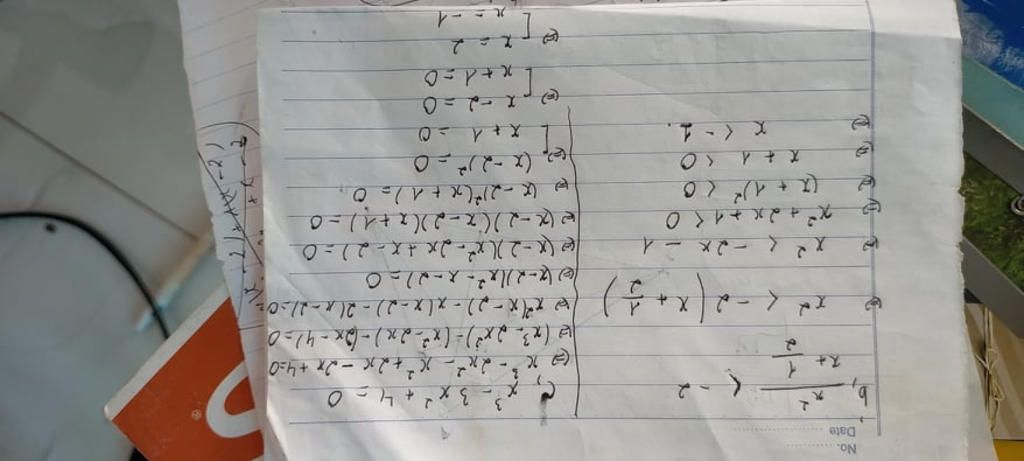 No. ..........
Date ....................
b, x² / (x + 1/2) < -2
(=) x² < -2 (x + 1/2)
(=) x² < -2x - 1
(=) x² + 2x + 1 < 0
(=) (x + 1)² < 0
(=) x + 1 < 0
(=) x < -1.
c, x³ - 3x² + 4 = 0
(=) x³ - 2x² - x² + 2x - 2x + 4 = 0
(=) (x³ - 2x²) - (x² - 2x) - (2x - 4) = 0
(=) x²(x - 2) - x(x - 2) - 2(x - 2) = 0
(=) (x - 2)(x² - x - 2) = 0
(=) (x - 2)(x² - 2x + x - 2) = 0
(=) (x - 2)(x - 2)(x + 1) = 0
(=) (x - 2)²(x + 1) = 0
(=) [ (x - 2)² = 0
x + 1 = 0
(=) [ x - 2 = 0
x + 1 = 0
(=) [ x = 2
x = -1